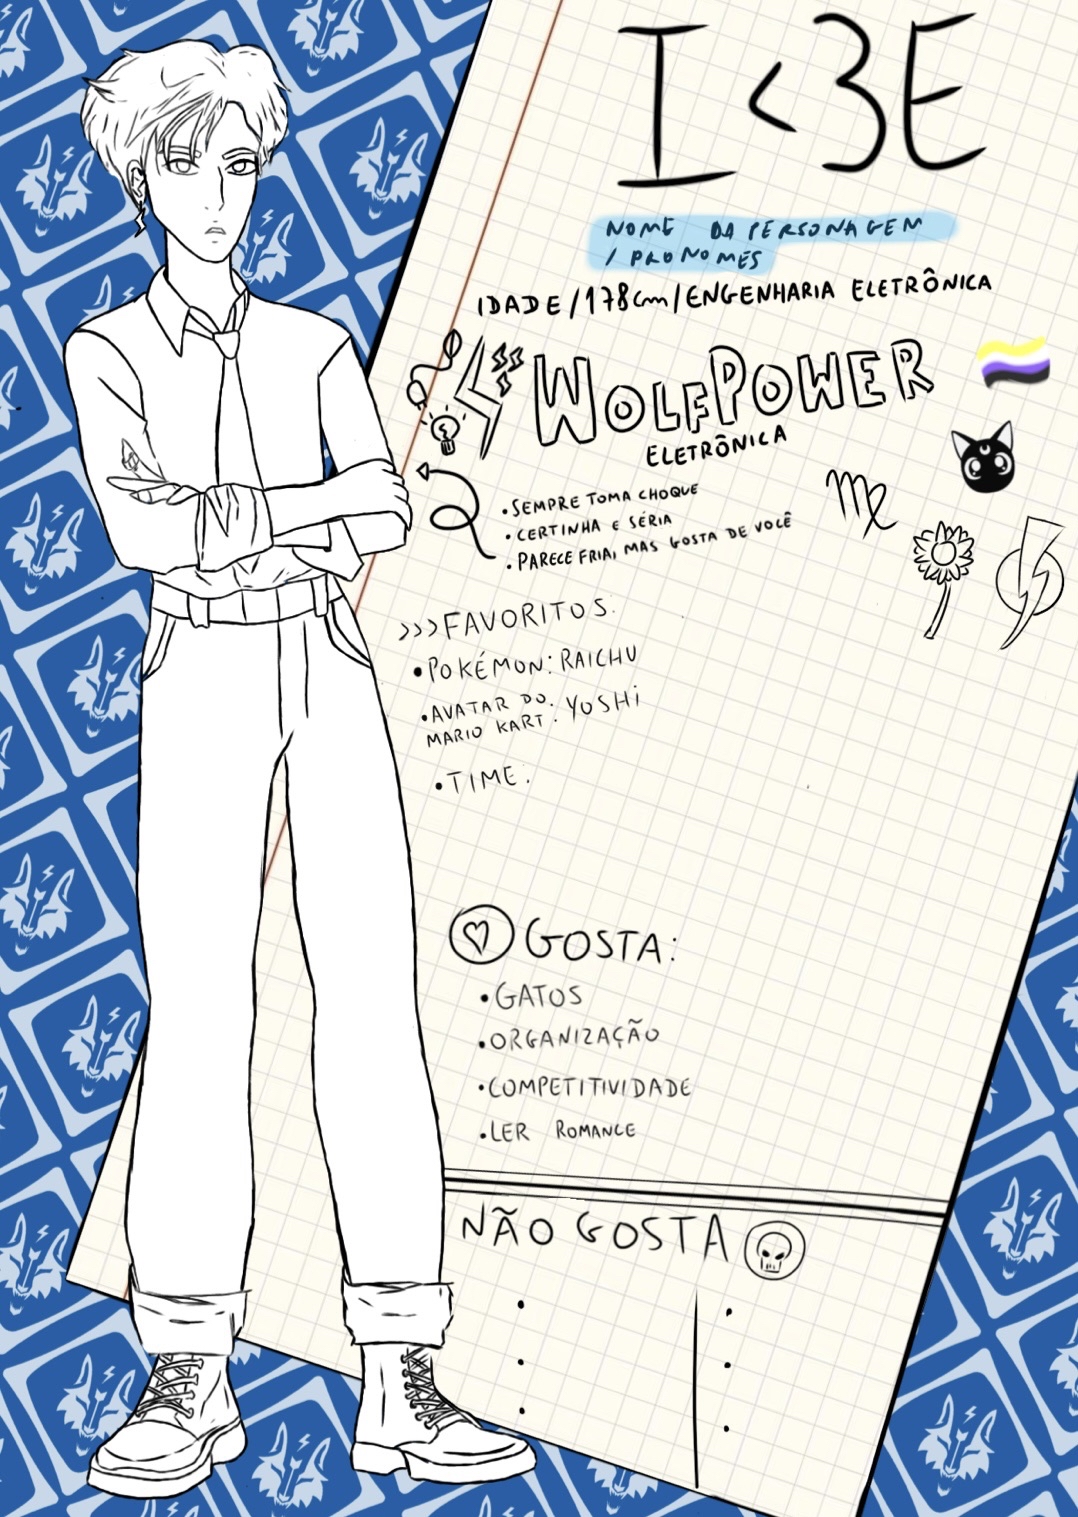 I <3E
NOME DA PERSONAGEM
/ PRONOMES
IDADE/178cm/ENGENHARIA ELETRÔNICA
WOLFPOWER
ELETRÔNICA
• SEMPRE TOMA CHOQUE
• CERTINHA E SÉRIA
• PARECE FRIA, MAS GOSTA DE VOCÊ
>>>FAVORITOS:
• POKÉMON: RAICHU
• AVATAR DO
MARIO KART: YOSHI
• TIME:
GOSTA:
• GATOS
• ORGANIZAÇÃO
• COMPETITIVIDADE
• LER ROMANCE
NÃO GOSTA